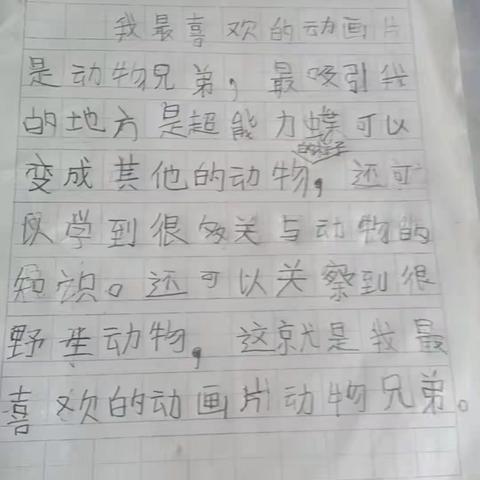 我最喜欢的动画片
是动物兄弟，最吸引我
的地方是超能力蝶可以
的样子
变成其他的动物，还可
以学到很多关与动物的
知识。还可以关察到很
野生动物，这就是我最
喜欢的动画片动物兄弟。